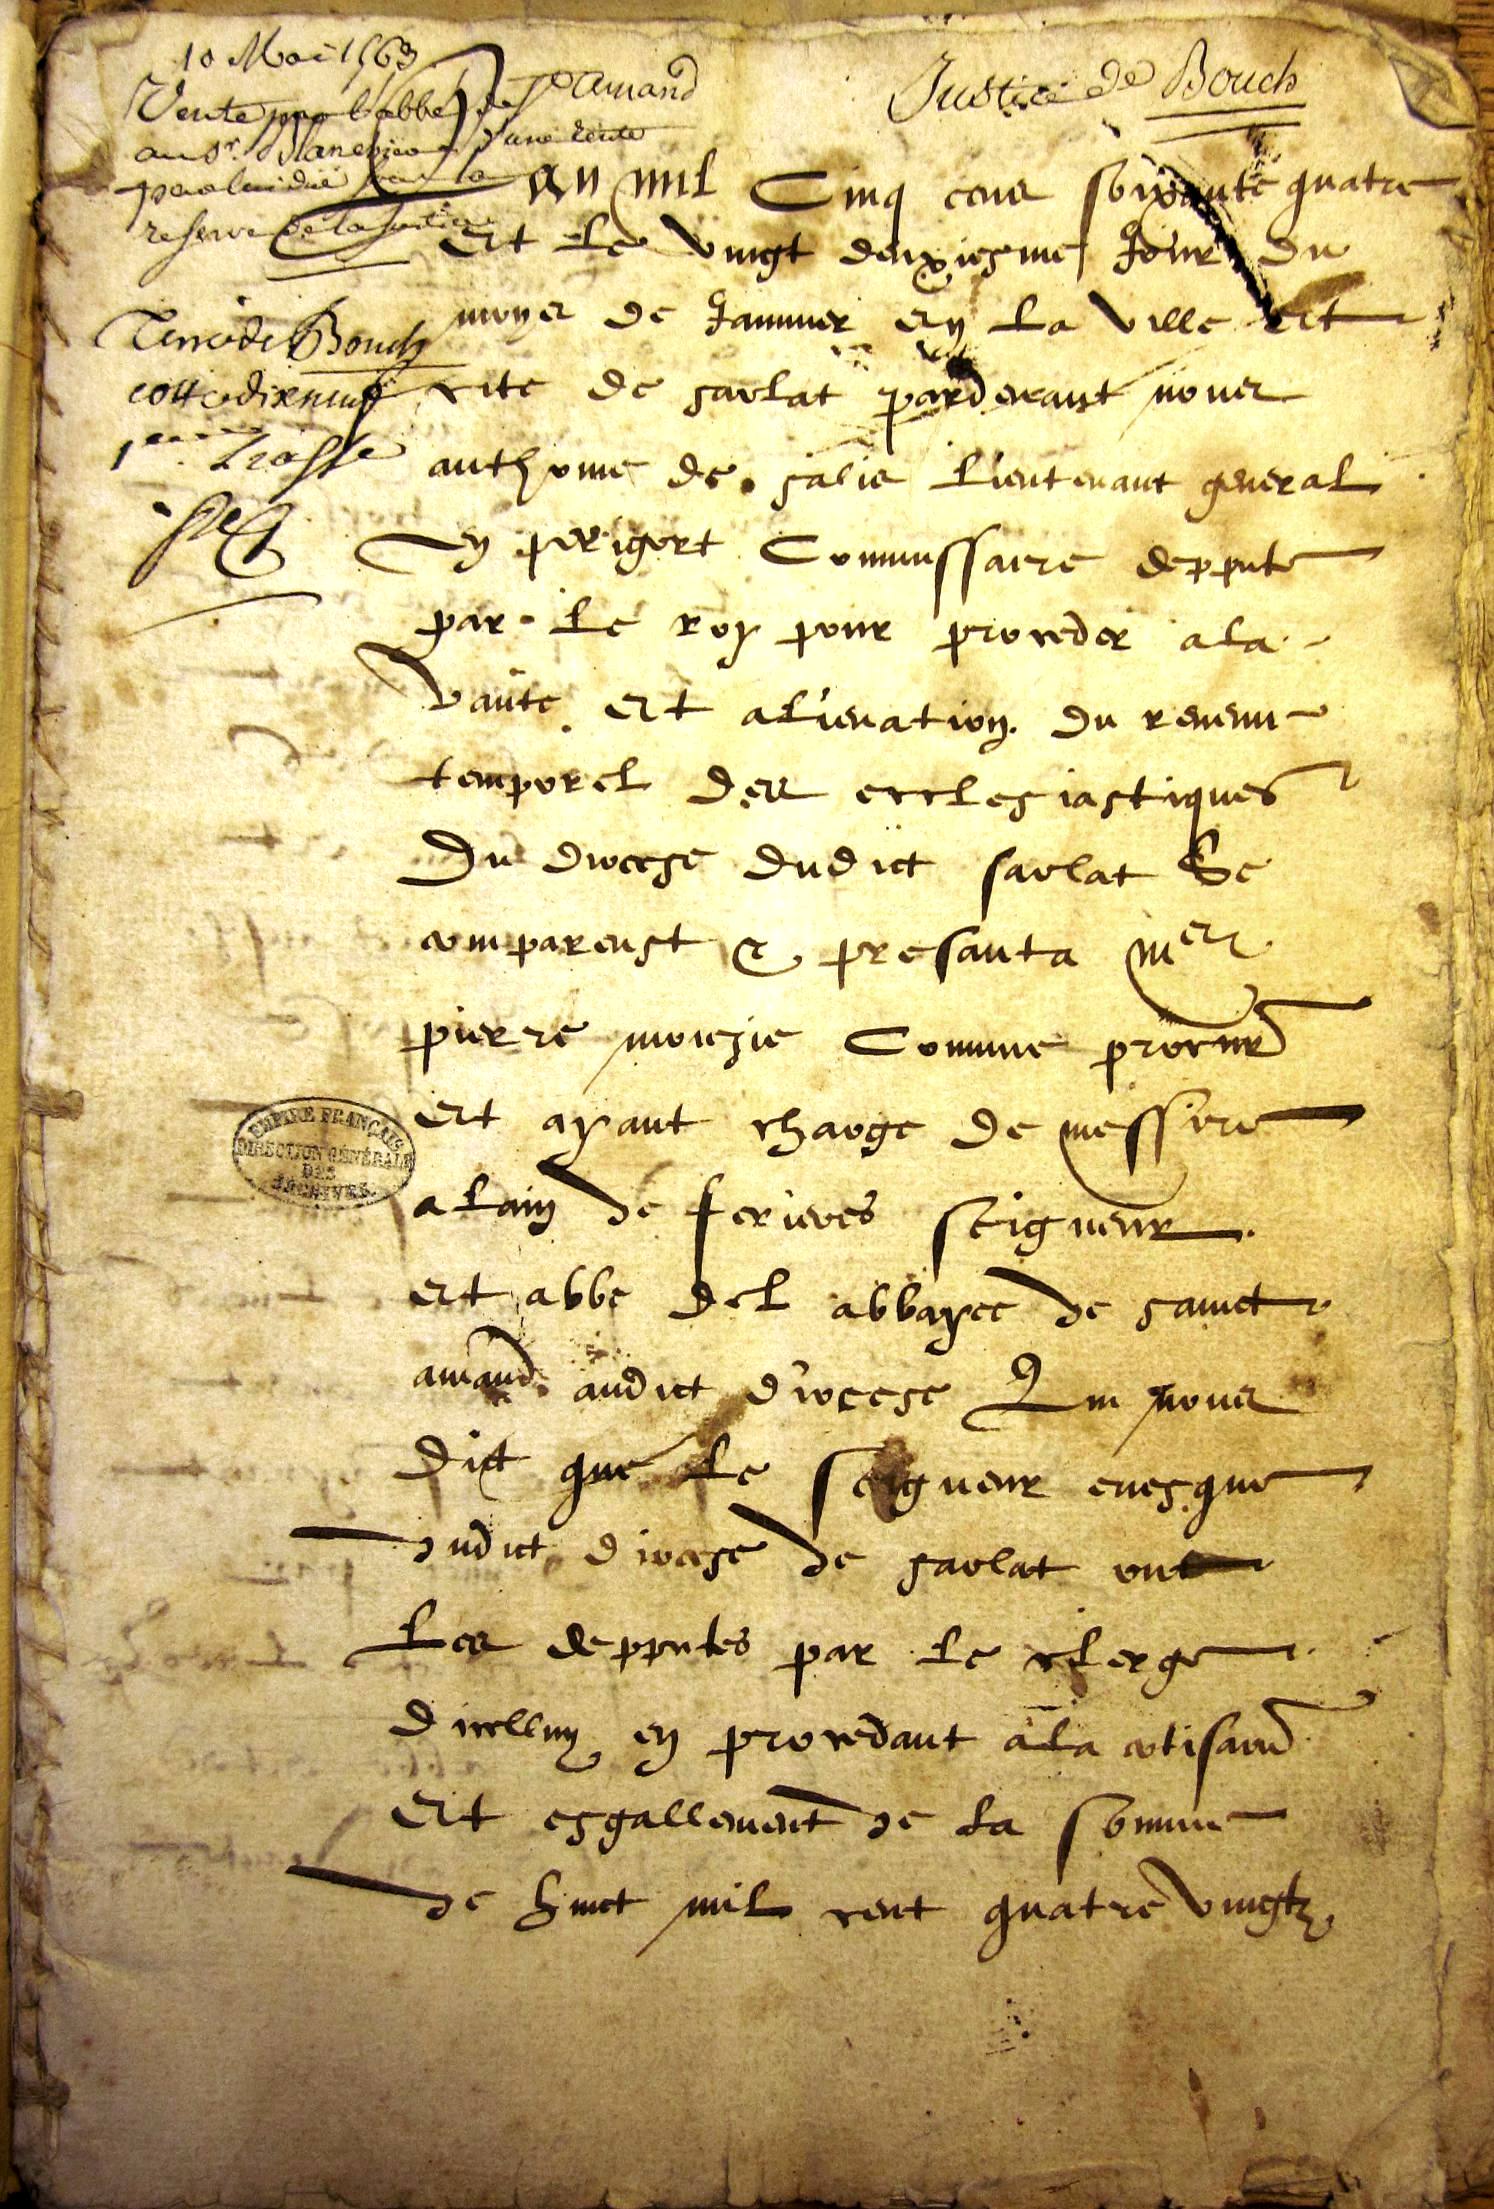 10 Mai 1563
Vente par l'abbé de St Amand
au Sr d'une rente
par lui due sur la
reserve de la justice
Justice de Bouch
Terre de Bouch
cotte dixneuf
1ere Liasse
L'an mil cinq cens soixante quatre
et le vingt deuxiesme jour du
moys de januier en la ville et
cite de sarlat pardevant nous
anthoine de salis lieutenant general
en perigort commissaire deppute
par le roy pour proceder a la
vante et alienation du revenu
temporel des ecclesiastiques
du diocese dudict sarlat se
comparenst & presanta mes
pierre moizie comme procur
et ayant charge de messire
alain de ferieres seigneur
et abbe del abbayee de sainct
amand audict diocese Qui nous
dict que le seigneur euesque
dudict diocese de sarlat ont
les depputes par le clerge
dicelluy en procedant a la cotisaon
et esgallement de la somme
de huict mil cent quatre vingtz
EMPIRE FRANÇAIS
DIRECTION GÉNÉRALE
DES
ARCHIVES